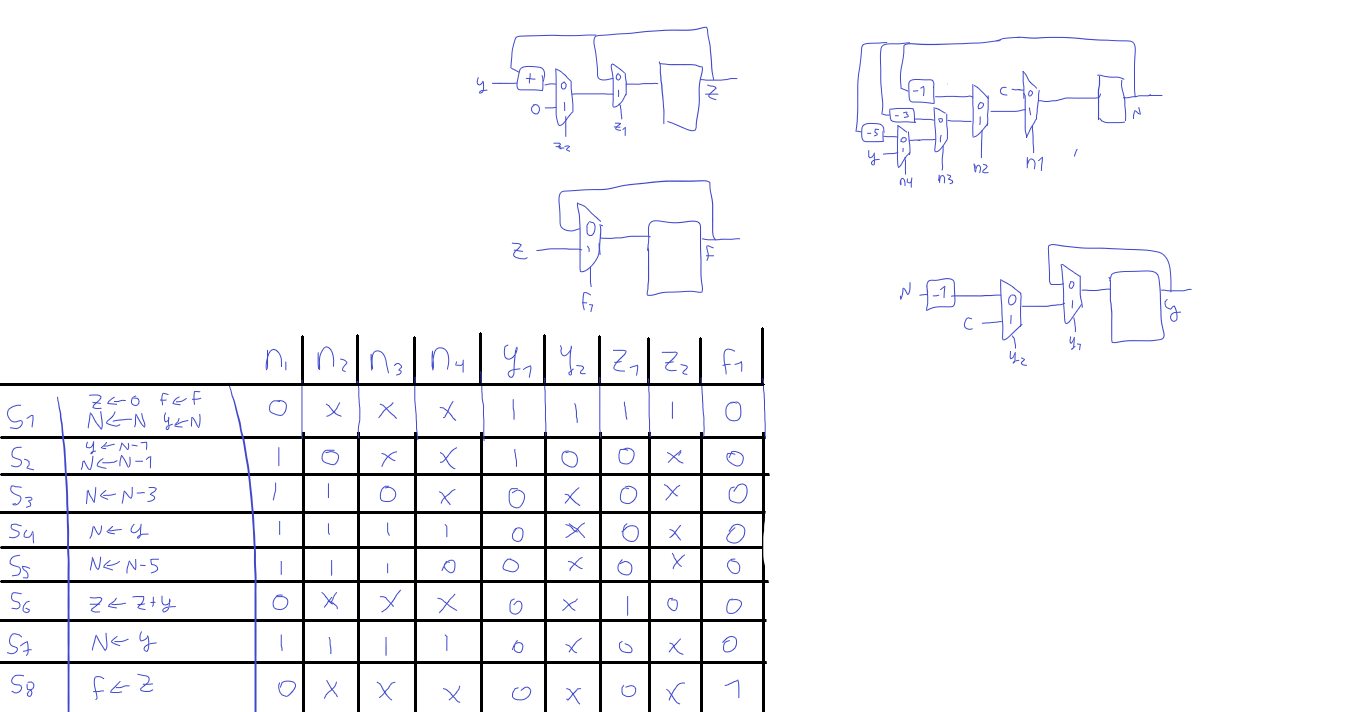 y + 0 1 0 0 1 z2 z1 Z
Z 0 1 f1 f
-1 -3 -5 y 0 1 n4 0 1 n3 0 1 n2 C 0 1 n1 N
N -1 C 0 1 y2 0 1 y1 y
n1 n2 n3 n4 y1 y2 z1 z2 f1
S1 Z←0 f←f
N←N y←N 0 x x x 1 1 1 1 0
S2 y←N-1
N←N-1 1 0 x x 1 0 0 x 0
S3 N←N-3 1 1 0 x 0 x 0 x 0
S4 N←y 1 1 1 1 0 x 0 x 0
S5 N←N-5 1 1 1 0 0 x 0 x 0
S6 Z←Z+y 0 x x x 0 x 1 0 0
S7 N←y 1 1 1 1 0 x 0 x 0
S8 f←Z 0 x x x 0 x 0 x 1